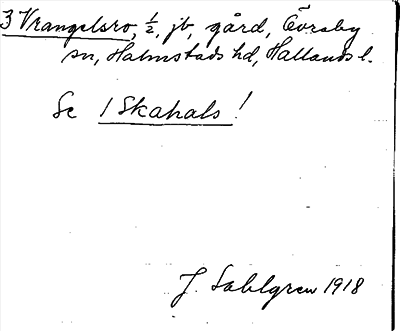 3 Vrangelsro, 1/2, jb, gård, Övraby
sn, Halmstads hd, Hallands l.
Se 1 Skahals!
J. Sahlgren 1918